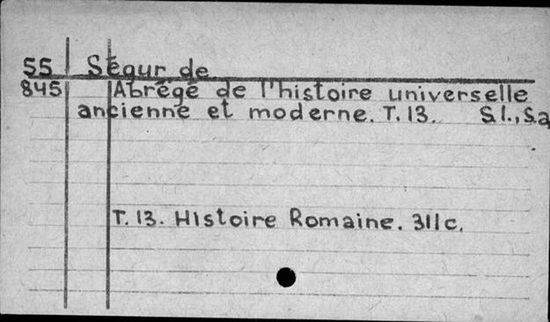 55 Ségur de
845 Abrégé de l'histoire universelle
ancienne et moderne. T. 13. S.l., S.a
T. 13. Histoire Romaine. 311c.